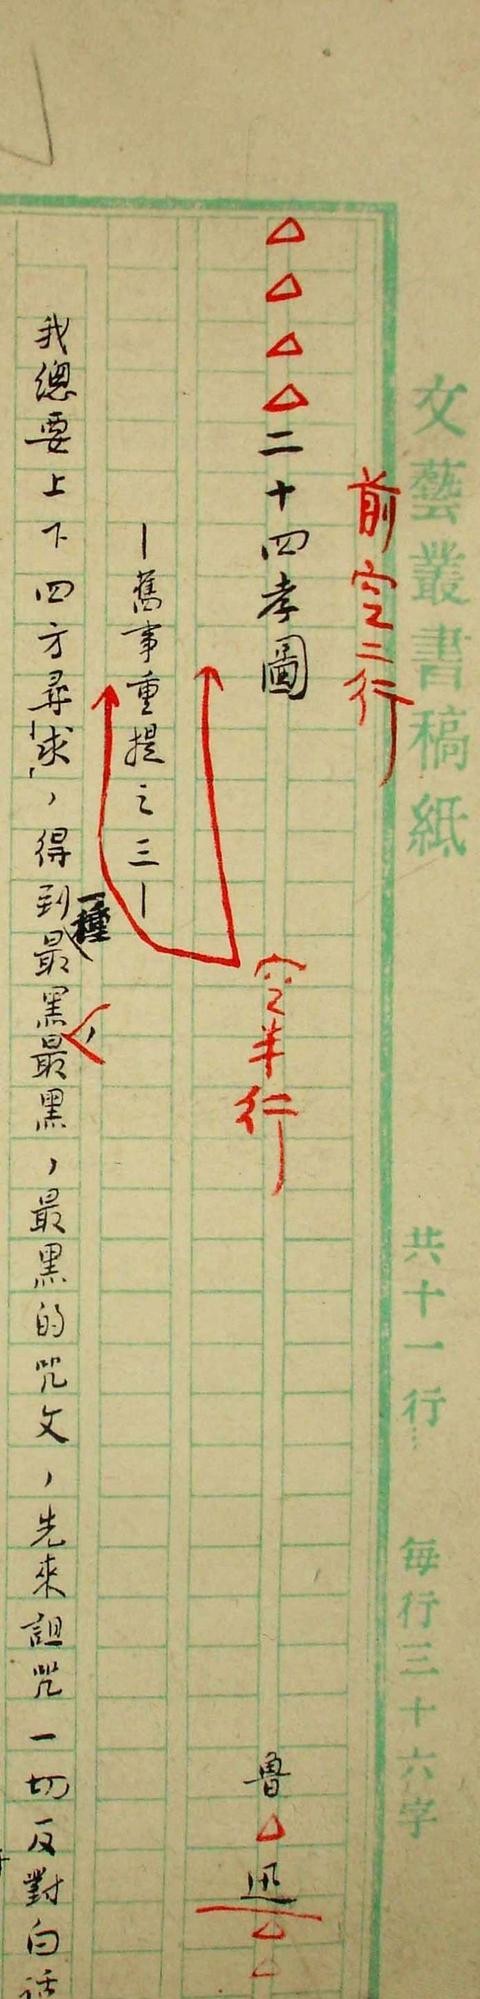 文藝叢書稿紙
共十一行 每行三十六字
前空二行
二十四孝圖
魯迅
空半行
—舊事重提之三—
我總要上下四方尋求，得到一種最黑，最黑，最黑的咒文，先來詛咒一切反對白話